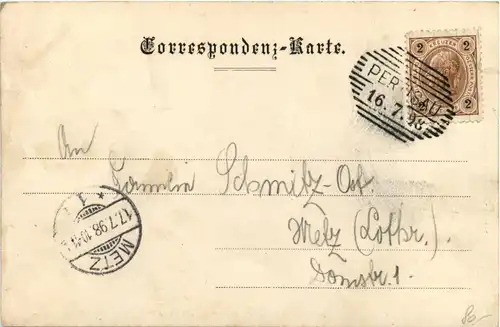 Correspondenz-Karte.
2 KREUZER 2
2 2
PERTISAU
16.7.98
An
Familie Schmitz-Ost
Metz (Lothr.)
Domstr. 1.
17.7.98
METZ
80